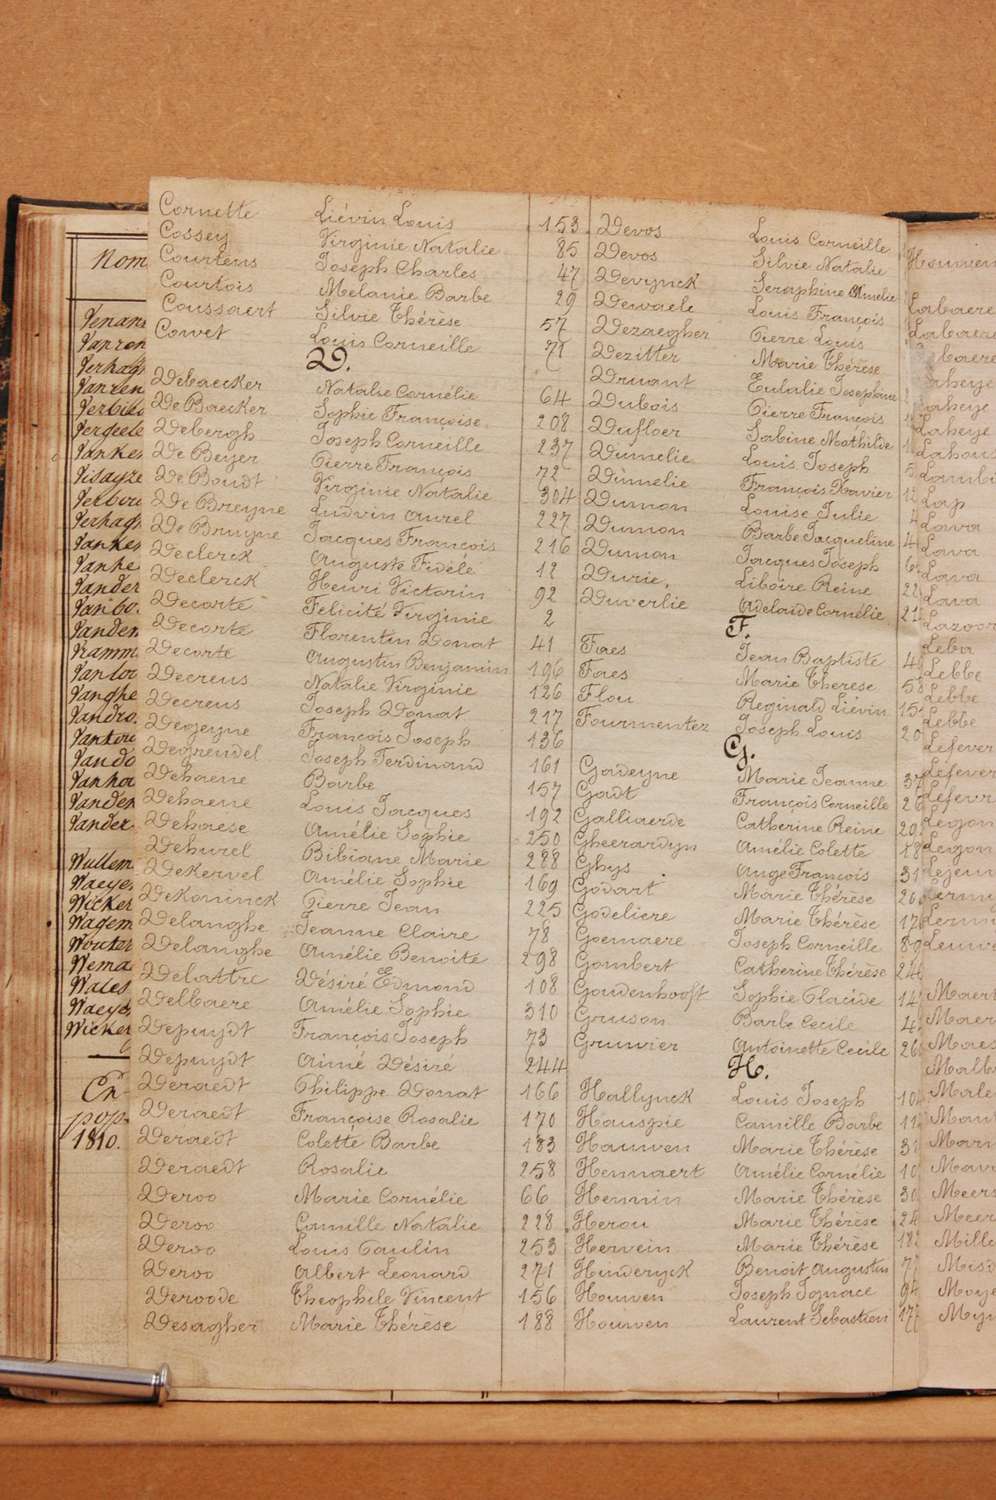 Cornette Liévin Louis 153
Cossey Virginie Natalie 85
Courtens Joseph Charles 47
Courtois Mélanie Barbe 29
Coussaert Silvie Thérèse 57
Couvet Louis Corneille 71
D.
Debaecker Natalie Cornélie 64
De Baecker Sophie Françoise 208
Debergh Joseph Corneille 237
De Beyer Pierre François 72
De Boudt Virginie Natalie 304
De Breyne Ludvin Aurel 227
De Bruyne Jacques François 216
Declerck Auguste Fidélé 12
Declerck Henri Victorin 92
Decorte Felicité Virginie 2
Decorte Florentin Donat 41
Decorte Augustin Benjamin 196
Decreus Natalie Virginie 126
Decreus Joseph Donat 217
Degeyne François Joseph 136
Degrendel Joseph Ferdinand 161
Dehaene Barbe 157
Dehaene Louis Jacques 192
Dehaese Amélie Sophie 250
Dehurel Bibiane Marie 288
DeKervel Amélie Sophie 169
DeKoninck Pierre Jean 225
Delanghe Jeanne Claire 78
Delanghe Amélie Benoite 298
Delattre Désiré Edmond 108
Delbaere Amélie Sophie 310
Depuydt François Joseph 73
Depuydt Aimé Désiré 244
Deraedt Philippe Donat 166
Deraedt Françoise Rosalie 170
Deraedt Colette Barbe 183
Deraedt Rosalie 258
Deroo Marie Cornélie 66
Deroo Camille Natalie 228
Deroo Louis Paulin 253
Deroo Albert Leonard 271
Deroode Théophile Vincent 156
Desagher Marie Thérèse 188
Devos Louis Corneille
Devos Silvie Natalie
Devynck Seraphine Amelie
Dewaele Louis François
Dezaegher Pierre Louis
Dezitter Marie Thérèse
Druant Eulalie Josephine
Dubois Pierre François
Dufloer Sabine Mathilde
Dumelie Louis Joseph
Dumelie François Xavier
Dumon Louise Julie
Dumon Barbe Jacqueline
Dumon Jacques Joseph
Durie, Liboire Reine
Duverlie Adelaide Cornélie
F.
Faes Jean Baptiste
Faes Marie Therese
Flou Reginald Lievin
Fourmentez Joseph Louis
G.
Gadeyne Marie Jeanne
Gadt François Corneille
Galliaerde Catherine Reine
Gheerardyn Amélie Colette
Ghys Ange François
Godart Marie Thérèse
Godeliere Marie Thérèse
Goemaere Joseph Corneille
Gombert Catherine Thérèse
Goudenhooft Sophie Placide
Gruson Barbe Cecile
Gruwier Antoinette Cecile
H.
Hallynck Louis Joseph
Hauspie Camille Barbe
Hauwen Marie Thérèse
Hennaert Amélie Cornélie
Hennin Marie Thérèse
Herou Marie Thérèse
Hervein Marie Thérèse
Hinderyck Benoit Augustin
Houwen Joseph Ignace
Houwen Laurent Sebastien
Nom
1810.
Lap
Lava
Lava
Lava
Lava
Lebbe
Lebbe
Lebbe